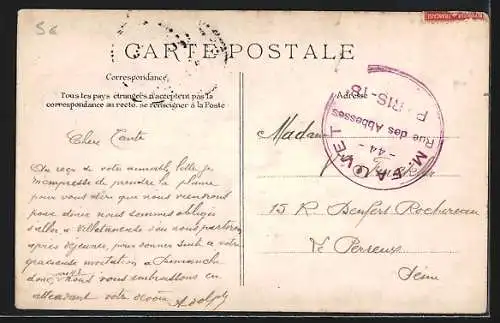 56
CARTE POSTALE
Correspondance
Tous les pays étrangers n'acceptent pas la
correspondance au recto. se renseigner à la Poste
Adresse
M. FAVET
44
Rue des Abbesses
PARIS-18
Chère Tante
Au reçu de votre aimable lettre je
m'empresse de prendre la plume
pour vous dire que nous viendrons
donc nous sommes obligés
d'aller à Villetaneuse où nous partirons
après déjeuner, pour donner suite à votre
gracieuse invitation à dimanche
donc, nous vous embrassons en
attendant votre
Adolphe
Madame
15 R Denfert Rochereau
Perreux
Seine